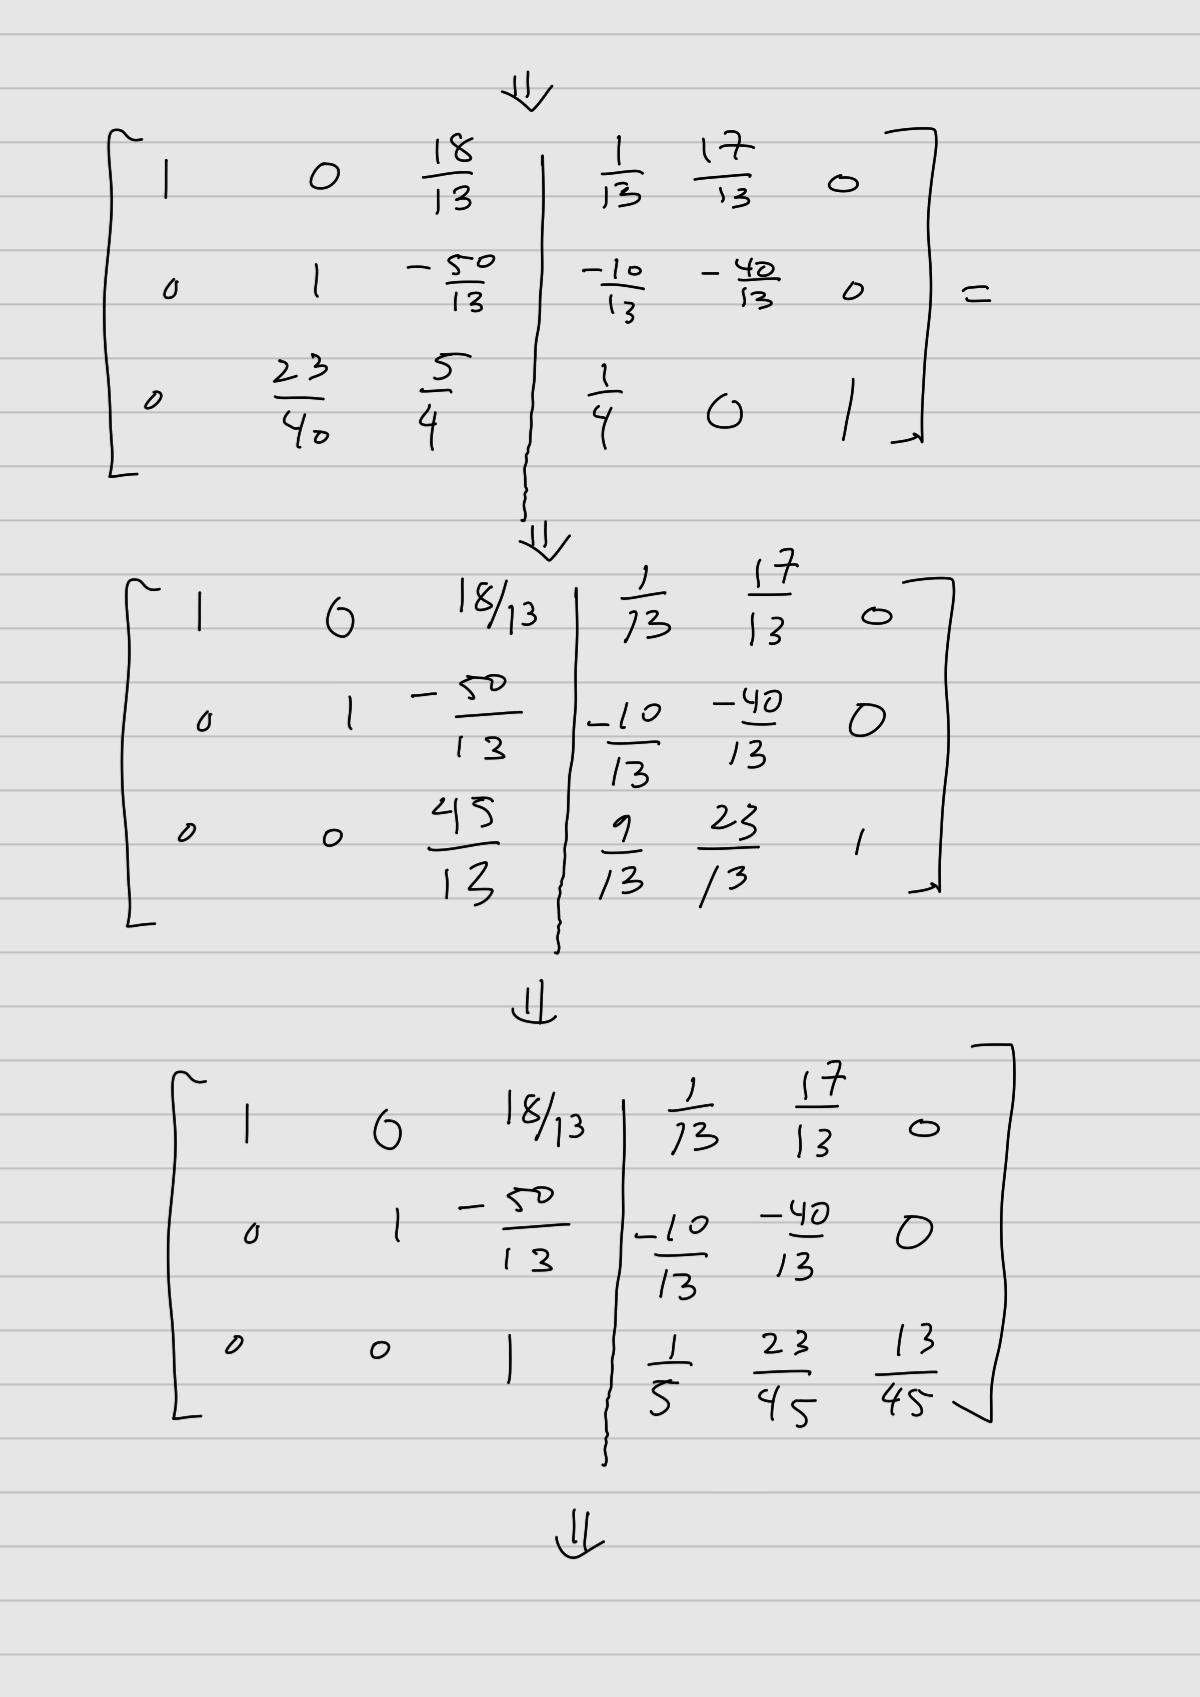 ⇓
[ 1 0 18/13 | 1/13 17/13 0 ]
[ 0 1 -50/13 | -10/13 -40/13 0 ] =
[ 0 23/40 5/4 | 1/4 0 1 ]
⇓
[ 1 0 18/13 | 1/13 17/13 0 ]
[ 0 1 -50/13 | -10/13 -40/13 0 ]
[ 0 0 45/13 | 9/13 23/13 1 ]
⇓
[ 1 0 18/13 | 1/13 17/13 0 ]
[ 0 1 -50/13 | -10/13 -40/13 0 ]
[ 0 0 1 | 1/5 23/45 13/45 ]
⇓